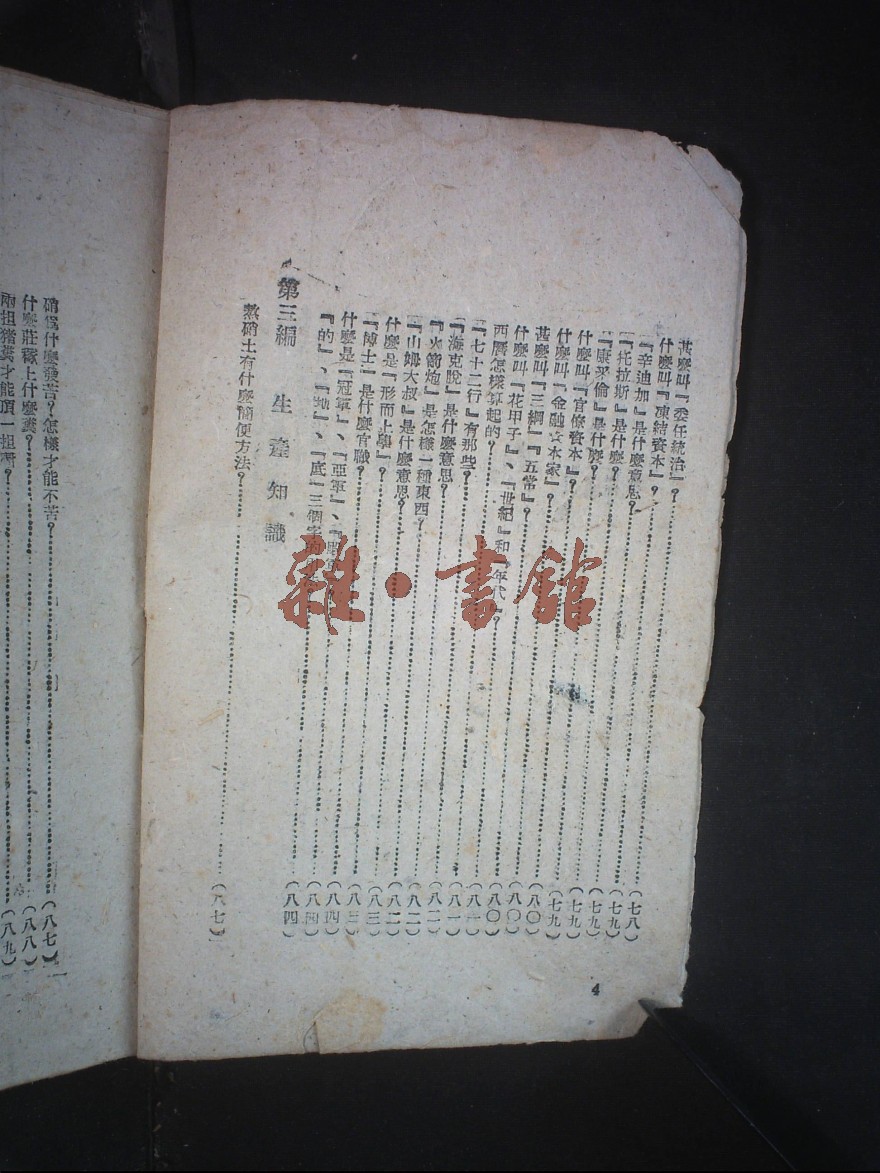 甚麼叫『委任統治』？……(七八)
什麼叫『凍結資本』？……(七九)
『辛迪加』是什麼意思？……(七九)
『托拉斯』是什麼？……(七九)
『康采倫』是什麼？……(七九)
什麼叫『官僚資本』？……(七九)
什麼叫『金融資本家』？……(八〇)
甚麼叫『三綱』『五常』？……(八〇)
什麼叫『花甲子』、『世紀』和『年代』？……(八〇)
西曆怎樣算起的？……(八一)
『七十二行』有那些？……(八一)
『海克脫』是什麼意思？……(八二)
『火箭炮』是怎樣一種東西？……(八二)
『山姆大叔』是什麼意思？……(八二)
什麼是『形而上學』？……(八三)
『博士』是什麼官職？……(八三)
什麼是『冠軍』、『亞軍』、……(八四)
『的』、『地』、『底』三個字的……(八四)
(八四)
第三編 生產知識
熬硝土有什麼簡便方法？……(八七)
4
硝爲什麼發苦？怎樣才能不苦？……(八七)
什麼莊稼上什麼糞？……(八八)
兩担猪糞才能頂一担……？……(八九)
雜·書館